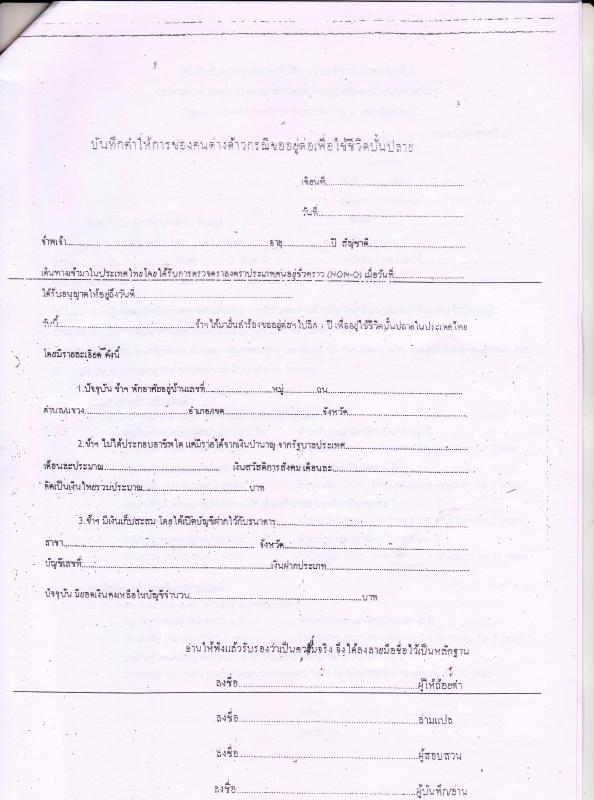 บันทึกคำให้การของคนต่างด้าวกรณีขออยู่ต่อเพื่อใช้ชีวิตบั้นปลาย
เขียนที่
วันที่
ข้าพเจ้า อายุ ปี สัญชาติ
เดินทางเข้ามาในประเทศไทยโดยได้รับการตรวจลงตราประเภทคนอยู่ชั่วคราว (NON-O) เมื่อวันที่
ได้รับอนุญาตให้อยู่ถึงวันที่
วันนี้ ข้าฯ ได้มายื่นคำร้องขออยู่ต่อฯ ไปอีก 1 ปี เพื่ออยู่ใช้ชีวิตบั้นปลายในประเทศไทย
โดยมีรายละเอียด ดังนี้
1.ปัจจุบัน ข้าฯ พักอาศัยอยู่บ้านเลขที่ หมู่ ถนน
ตำบล/แขวง อำเภอ/เขต จังหวัด
2.ข้าฯ ไม่ได้ประกอบอาชีพใด แต่มีรายได้จากเงินบำนาญ จากรัฐบาลประเทศ
เดือนละประมาณ เงินสวัสดิการสังคม เดือนละ
คิดเป็นเงินไทยรวมประมาณ บาท
3.ข้าฯ มีเงินเก็บสะสม โดยได้เปิดบัญชีฝากไว้กับธนาคาร
สาขา จังหวัด
บัญชีเลขที่ เงินฝากประเภท
ปัจจุบัน มียอดเงินคงเหลือในบัญชีจำนวน บาท
อ่านให้ฟังแล้วรับรองว่าเป็นความจริง จึงได้ลงลายมือชื่อไว้เป็นหลักฐาน
ลงชื่อ ผู้ให้ถ้อยคำ
ลงชื่อ ล่ามแปล
ลงชื่อ ผู้สอบสวน
ลงชื่อ ผู้บันทึก/อ่าน